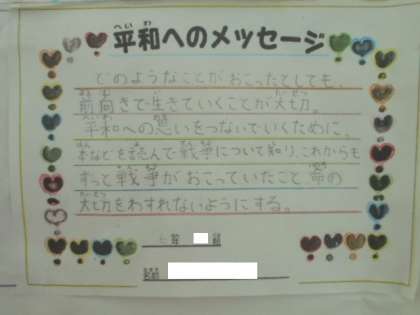 平和へのメッセージ
どのようなことがおこったとしても、
前向きで生きていくことが大切。
平和への思いをつないでいくために、
本などを読んで戦争について知り、これからも
ずっと戦争がおこっていたこと、命の
大切をわすれないようにする。
年 組
名前